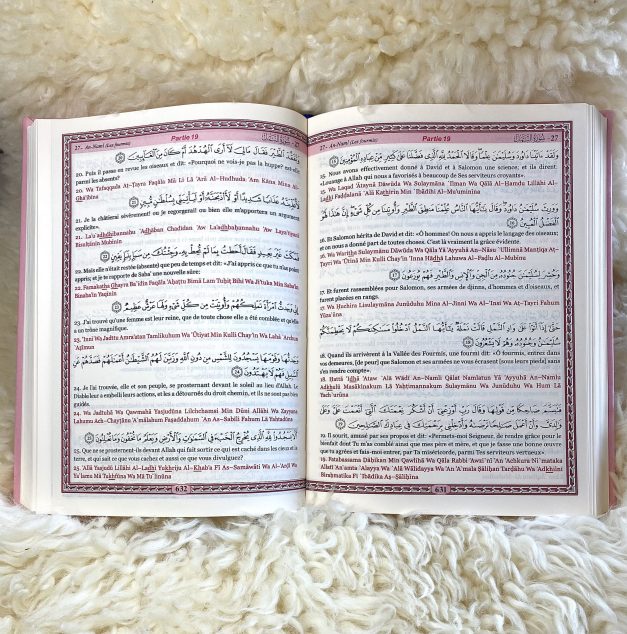 27- An-Naml (Les fourmis)
Partie 19
سورة النمل -27
وَلَقَدْ ءَاتَيْنَا دَاوُۥدَ وَسُلَيْمَٰنَ عِلْمًا وَقَالَا ٱلْحَمْدُ لِلَّهِ ٱلَّذِى فَضَّلَنَا عَلَىٰ كَثِيرٍ مِّنْ عِبَادِهِ ٱلْمُؤْمِنِينَ ١٥
15. Nous avons effectivement donné à David et à Salomon une science; et ils dirent:
«Louange à Allah qui nous a favorisés à beaucoup de Ses serviteurs croyants».
15. Wa Laqad 'Ātaynā Dāwūda Wa Sulaymāna `Ilman Wa Qālā Al-Ĥamdu Lillāhi Al-
Ladhī Faddalanā `Alá Kathīrin Min `Ibādihi Al-Mu'uminīna
وَوَرِثَ سُلَيْمَٰنُ دَاوُۥدَ وَقَالَ يَٰٓأَيُّهَا ٱلنَّاسُ عُلِّمْنَا مَنطِقَ ٱلطَّيْرِ وَأُوتِينَا مِن كُلِّ شَىْءٍ إِنَّ هَٰذَا لَهُوَ
ٱلْفَضْلُ ٱلْمُبِينُ ١٦
16. Et Salomon hérita de David et dit: «Ô hommes! On nous a appris le langage des oiseaux;
et on nous a donné part de toutes choses. C'est là vraiment la grâce évidente.
16. Wa Waritha Sulaymānu Dāwūda Wa Qāla Yā 'Ayyuhā An-Nāsu `Ullimnā Manţiqa Aţ-
Ţayri Wa 'Ūtīnā Min Kulli Chay'in 'Inna Hādhā Lahuwa Al-Fađlu Al-Mubīnu
وَحُشِرَ لِسُلَيْمَٰنَ جُنُودُهُۥ مِنَ ٱلْجِنِّ وَٱلْإِنسِ وَٱلطَّيْرِ فَهُمْ يُوزَعُونَ ١٧
17. Et furent rassemblées pour Salomon, ses armées de djinns, d'hommes et d'oiseaux, et
furent placées en rangs.
17. Wa Ĥuchira Lisulaymāna Junūduhu Mina Al-Jinni Wa Al-'Insi Wa Aţ-Ţayri Fahum
Yūza`ūna
حَتَّىٰٓ إِذَآ أَتَوْا۟ عَلَىٰ وَادِ ٱلنَّمْلِ قَالَتْ نَمْلَةٌ يَٰٓأَيُّهَا ٱلنَّمْلُ ٱدْخُلُوا۟ مَسَٰكِنَكُمْ لَا يَحْطِمَنَّكُمْ
سُلَيْمَٰنُ وَجُنُودُهُۥ وَهُمْ لَا يَشْعُرُونَ ١٨
18. Quand ils arrivèrent à la Vallée des Fourmis, une fourmi dit: «Ô fourmis, entrez dans
vos demeures, [de peur] que Salomon et ses armées ne vous écrasent [sous leurs pieds] sans
s'en rendre compte».
18. Ĥattá 'Idhā 'Ataw `Alá Wādī An-Namli Qālat Namlatun Yā 'Ayyuhā An-Namlu
Adkhulū Masākinakum Lā Yaĥţimannakum Sulaymānu Wa Junūduhu Wa Hum Lā
Yach`urūna
فَتَبَسَّمَ ضَاحِكًا مِّن قَوْلِهَا وَقَالَ رَبِّ أَوْزِعْنِىٓ أَنْ أَشْكُرَ نِعْمَتَكَ ٱلَّتِىٓ أَنْعَمْتَ عَلَىَّ وَعَلَىٰ
وَٰلِدَىَّ وَأَنْ أَعْمَلَ صَٰلِحًا تَرْضَىٰهُ وَأَدْخِلْنِى بِرَحْمَتِكَ فِى عِبَادِكَ ٱلصَّٰلِحِينَ ١٩
19. Il sourit, amusé par ses propos et dit: «Permets-moi Seigneur, de rendre grâce pour le
bienfait dont Tu m'as comblé ainsi que mes père et mère, et que je fasse une bonne œuvre
que tu agrées et fais-moi entrer, par Ta miséricorde, parmi Tes serviteurs vertueux».
19. Fatabassama Đāĥikāan Min Qawlihā Wa Qāla Rabbi 'Awzi`nī 'An 'Achkura Ni`mataka
Allatī 'An`amta `Alayya Wa `Alá Wālidayya Wa 'An 'A`mala Şāliĥan Tarđāhu Wa 'Adkhilnī
Biraĥmatika Fī `Ibādika Aş-Şāliĥīna
631
27- An-Naml (Les fourmis)
Partie 19
سورة النمل -27
وَتَفَقَّدَ ٱلطَّيْرَ فَقَالَ مَالِىَ لَآ أَرَى ٱلْهُدْهُدَ أَمْ كَانَ مِنَ ٱلْغَآئِبِينَ ٢٠
20. Puis il passa en revue les oiseaux et dit: «Pourquoi ne vois-je pas la huppe? est-elle
parmi les absents?
20. Wa Tafaqqada Aţ-Ţayra Faqāla Mā Lī Lā 'Ará Al-Hudhuda 'Am Kāna Mina Al-
Ghā'ibīna
لَأُعَذِّبَنَّهُۥ عَذَابًا شَدِيدًا أَوْ لَأَا۟ذْبَحَنَّهُۥٓ أَوْ لَيَأْتِيَنِّى بِسُلْطَٰنٍ مُّبِينٍ ٢١
21. Je la châtierai sévèrement! ou je l'égorgerai! ou bien elle m'apportera un argument
explicite».
21. La'u`adhdhibannahu `Adhāban Chadīdan 'Aw La'adhbaĥannahu 'Aw Laya'tiyannī
Bisulţānin Mubīnin
فَمَكَثَ غَيْرَ بَعِيدٍ فَقَالَ أَحَطتُ بِمَا لَمْ تُحِطْ بِهِۦ وَجِئْتُكَ مِن سَبَإٍۭ بِنَبَإٍ يَقِينٍ ٢٢
22. Mais elle n'était restée (absente) que peu de temps et dit: «J'ai appris ce que tu n'as point
appris; et je te rapporte de Saba' une nouvelle sûre:
22. Famakatha Ghayra Ba`īdin Faqāla 'Aĥaţtu Bimā Lam Tuĥiţ Bihi Wa Ji'tuka Min Saba'in
Binaba'in Yaqīnin
إِنِّى وَجَدتُّ ٱمْرَأَةً تَمْلِكُهُمْ وَأُوتِيَتْ مِن كُلِّ شَىْءٍ وَلَهَا عَرْشٌ عَظِيمٌ ٢٣
23. J'ai trouvé qu'une femme est leur reine, que de toute chose elle a été comblée et qu'elle
a un trône magnifique.
23. 'Innī Wa Jadttu Amra'atan Tamlikuhum Wa 'Ūtiyat Min Kulli Chay'in Wa Lahā `Archun
`Ažīmun
وَجَدتُّهَا وَقَوْمَهَا يَسْجُدُونَ لِلشَّمْسِ مِن دُونِ ٱللَّهِ وَزَيَّنَ لَهُمُ ٱلشَّيْطَٰنُ أَعْمَٰلَهُمْ فَصَدَّهُمْ عَنِ
ٱلسَّبِيلِ فَهُمْ لَا يَهْتَدُونَ ٢٤
24. Je l'ai trouvée, elle et son peuple, se prosternant devant le soleil au lieu d'Allah. Le
Diable leur a embelli leurs actions, et les a détournés du droit chemin, et ils ne sont pas bien
guidés.
24. Wa Jadtuhā Wa Qawmahā Yasjudūna Lilchchamsi Min Dūni Allāhi Wa Zayyana
Lahumu Ach-Chayţānu 'A`mālahum Faşaddahum `An As-Sabīli Fahum Lā Yahtadūna
أَلَّا يَسْجُدُوا۟ لِلَّهِ ٱلَّذِى يُخْرِجُ ٱلْخَبْءَ فِى ٱلسَّمَٰوَٰتِ وَٱلْأَرْضِ وَيَعْلَمُ مَا تُخْفُونَ وَمَا تُعْلِنُونَ ٢٥
25. Que ne se prosternent-ils devant Allah qui fait sortir ce qui est caché dans les cieux et la
terre, et qui sait ce que vous cachez et aussi ce que vous divulguez?
25. 'Allā Yasjudū Lillāhi Al-Ladhī Yukhriju Al-Khab'a Fī As-Samāwāti Wa Al-'Arđi Wa
Ya`lamu Mā Tukhfūna Wa Mā Tu`linūna
632